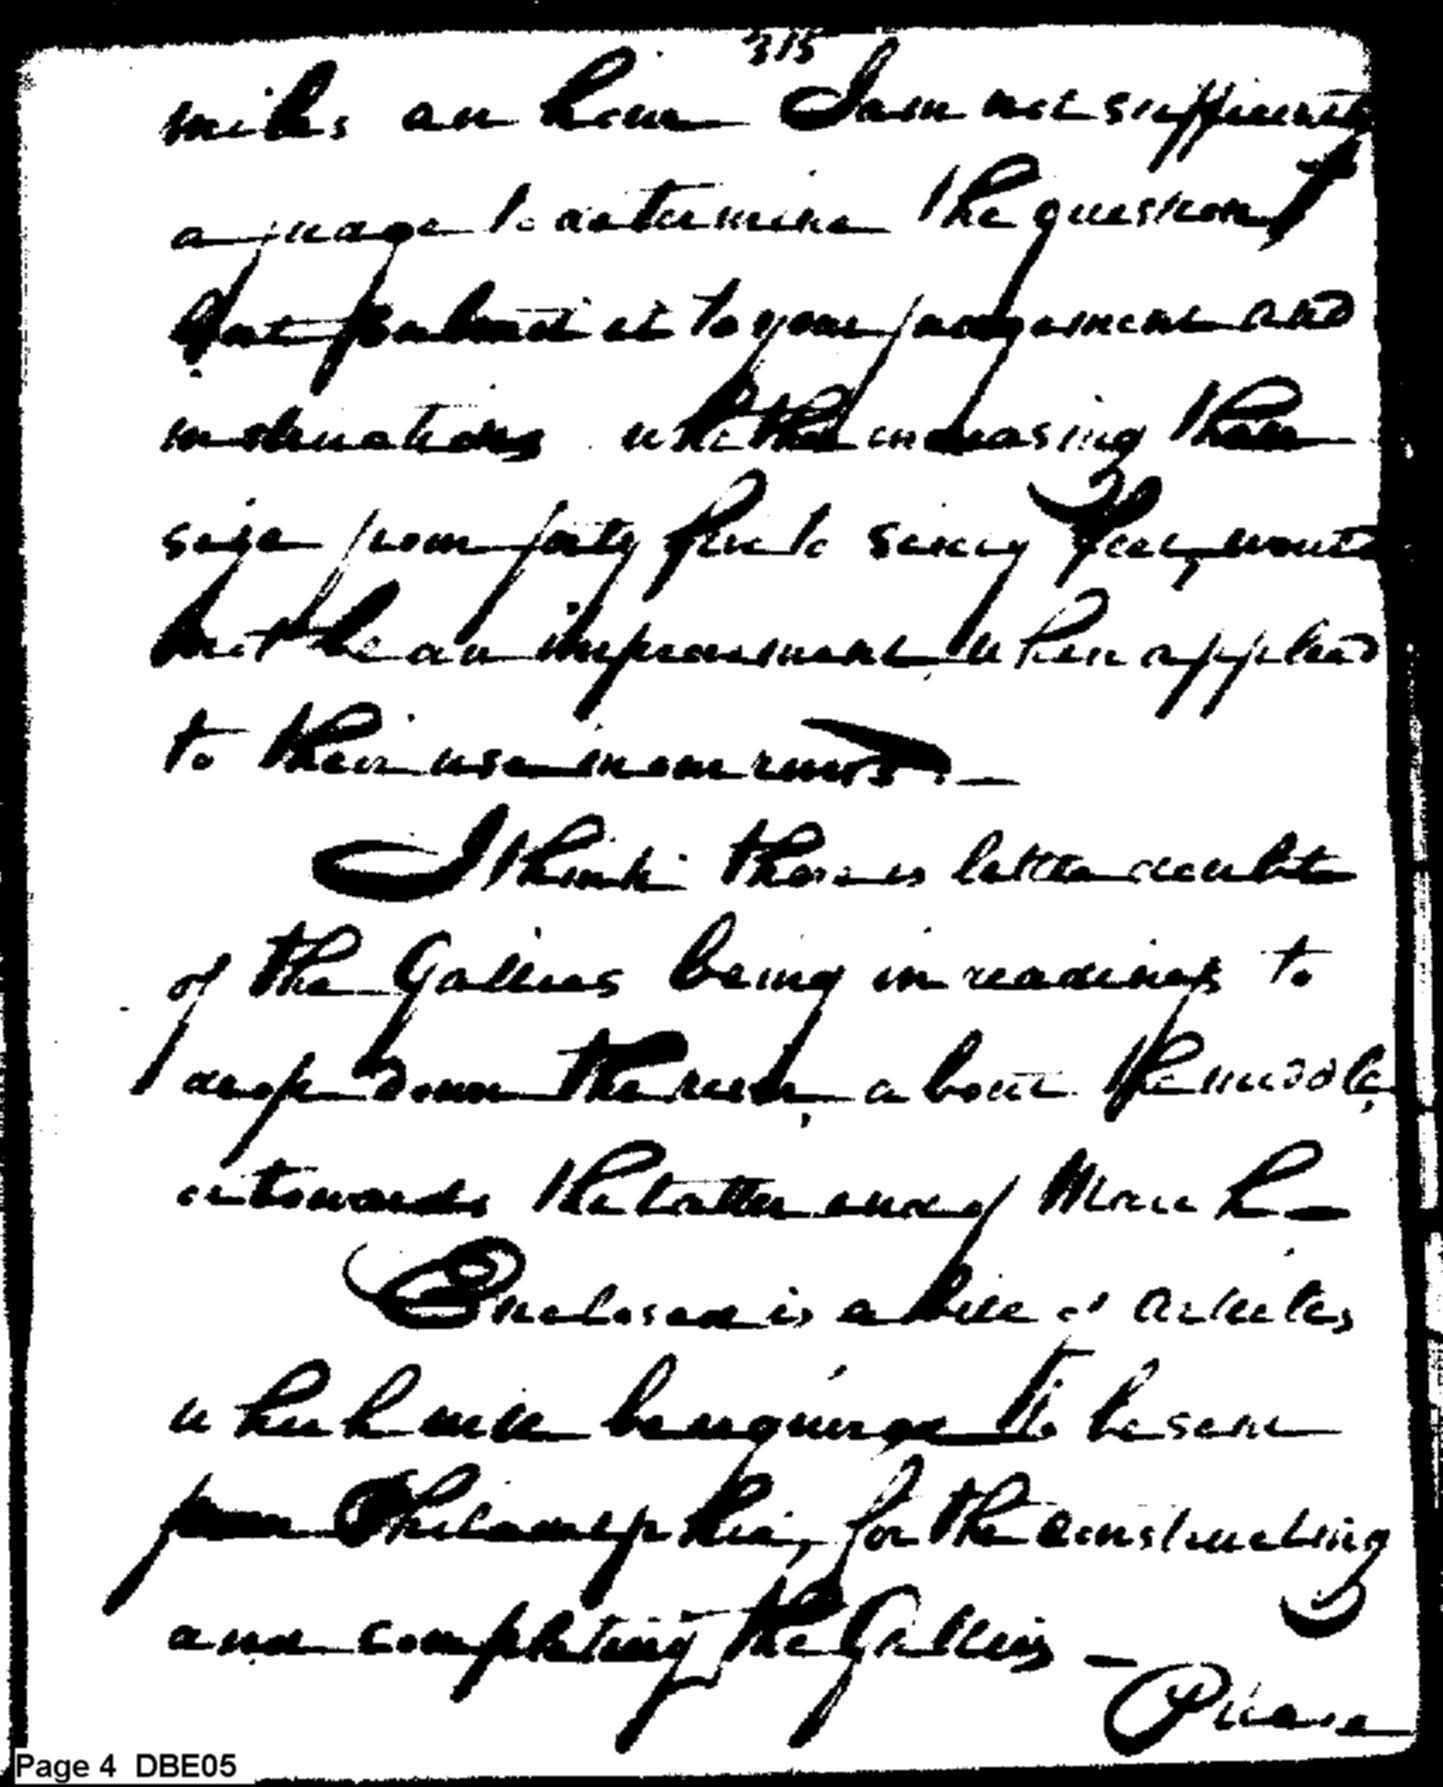 315
miles an hour I am not sufficiently
a judge to determine the question,
but submit it to your judgement and
instructions whether increasing their
size from forty five to sixty feet, would
not be an improvement, when applied
to their use in our rivers. —
I think there is little doubt
of the Gallies being in readiness to
drop down the river, about the middle,
or towards the latter end of March —
Enclosed is a bill of articles,
which will be required to be sent
from Philadelphia, for the constructing
and completing the Gallies —
Please
Page 4 DBE05